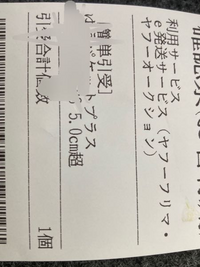 利用サービス
e発送サービス（ヤフーフリマ・
ヤフーオークション）
[簡単引受]
ットプラス
5.0cm超
引受合計個数 1個